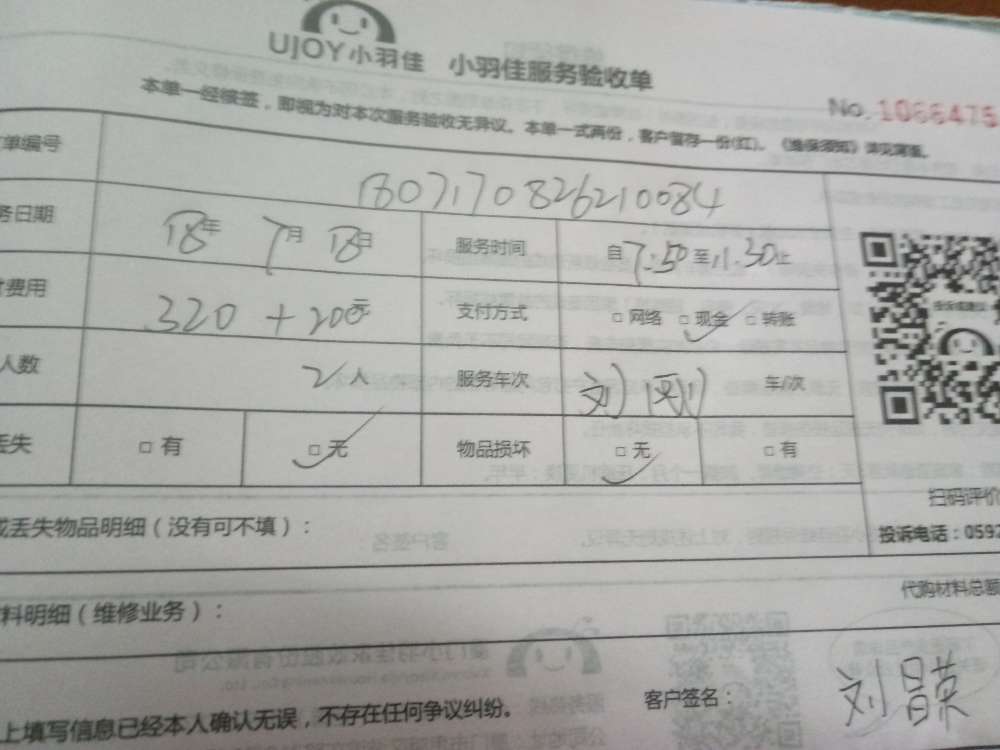 UJOY小羽佳 小羽佳服务验收单
No. 1066475
本单一经续签，即视为对本次服务验收无异议。本单一式两份，客户留存一份(红)。《维保须知》详见背面。
单编号 1807170826210084
务日期 18年 7月 18日 服务时间 自7:50至11.30止
费用 320 + 200元 支付方式 □ 网络 □ 现金 □ 转账
人数 2人 服务车次 刘 车/次
丢失 □ 有 □ 无 物品损坏 □ 无 □ 有
扫码评价
或丢失物品明细（没有可不填）：
投诉电话：0592
代购材料总额
料明细（维修业务）：
上填写信息已经本人确认无误，不存在任何争议纠纷。
客户签名： 刘昌荣